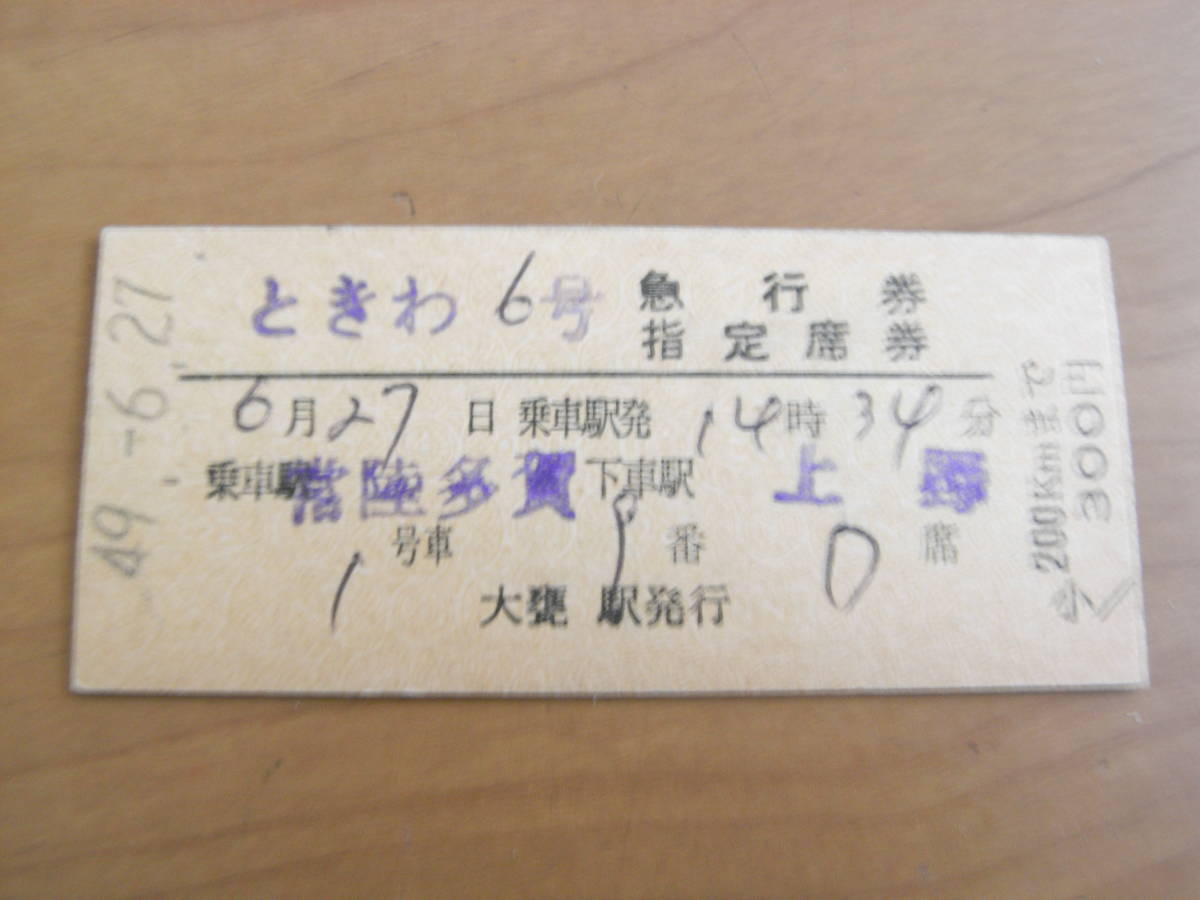 49.-6.27
ときわ 6号 急行券
指定席券
6月27日 乗車駅発 14時34分
乗車駅 常陸多賀 下車駅 上野
1号車 9番 D席
大甕駅発行
200Kmまで
300円